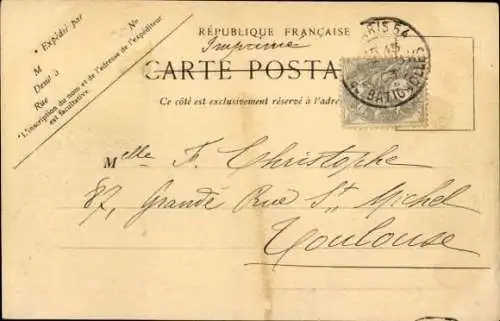 Expédié par
N°
M
Demt à
Rue
*L'inscription du nom et de l'adresse de l'expéditeur
est facultative.
RÉPUBLIQUE FRANÇAISE
Imprimé
CARTE POSTA
Ce côté est exclusivement réservé à l'adre
PARIS 54
BATIGNOLLES
Melle F. Christophe
87, Grande Rue St Michel
Toulouse